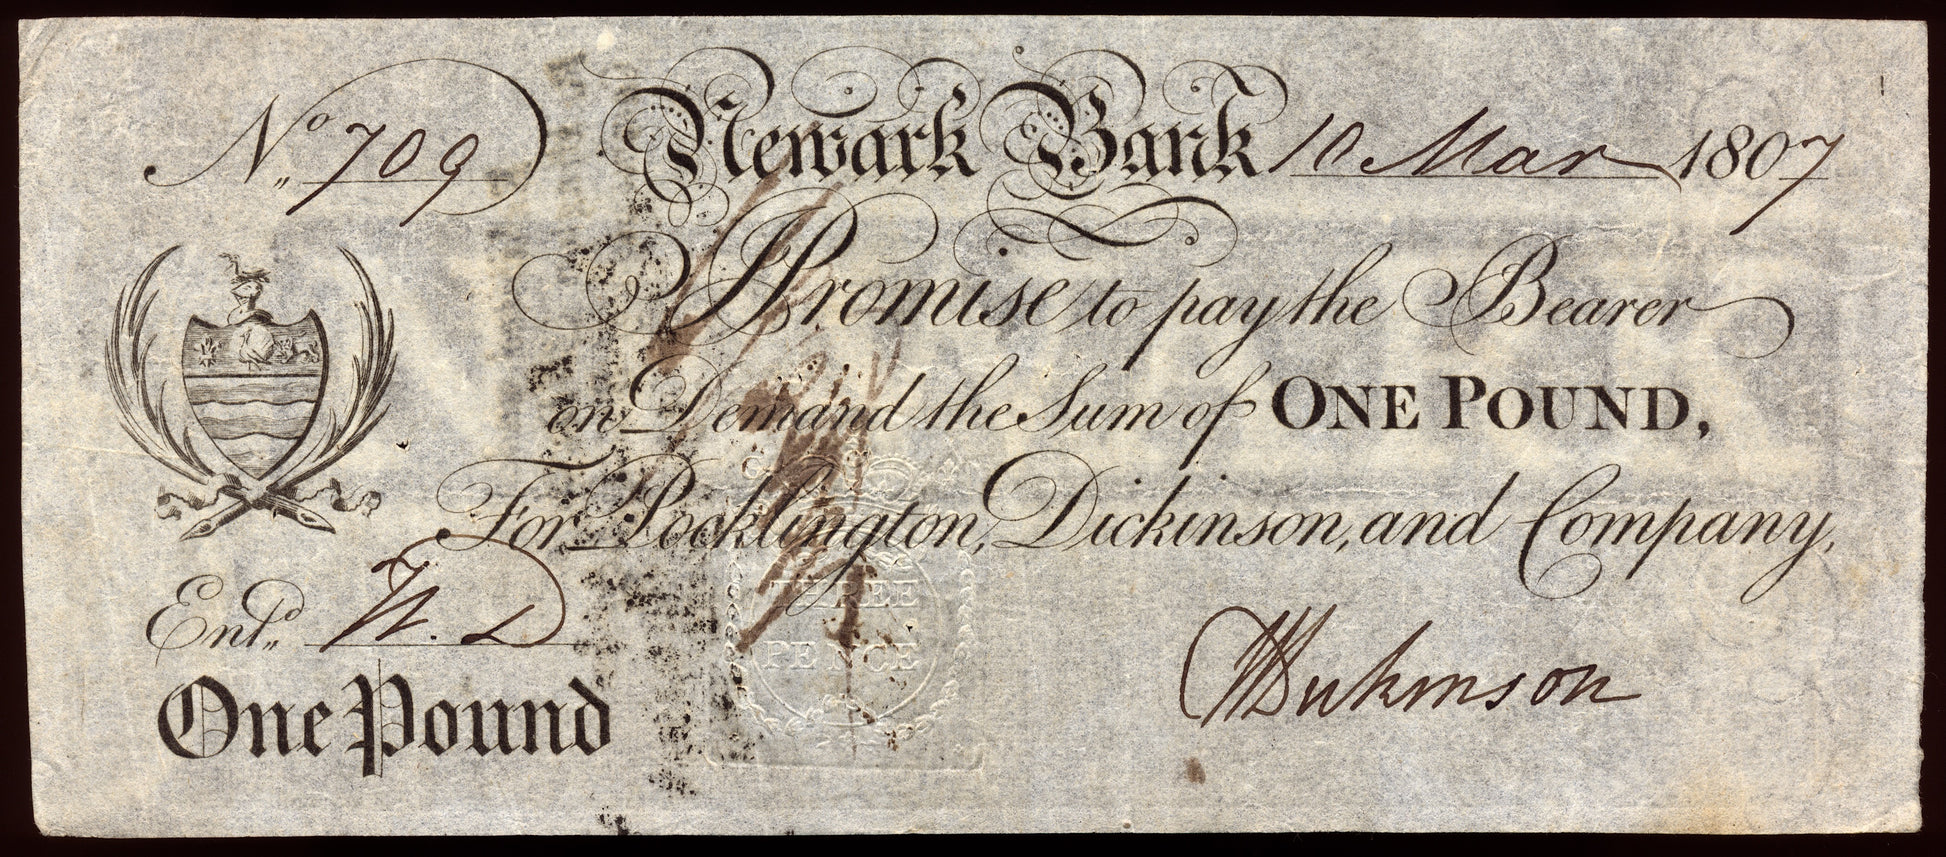 No. 709 Newark Bank 10 Mar 1807
I Promise to pay the Bearer
on Demand the Sum of ONE POUND,
For Pocklington, Dickinson, and Company,
Entd. W. D
THREE
PENCE
WDickinson
One Pound